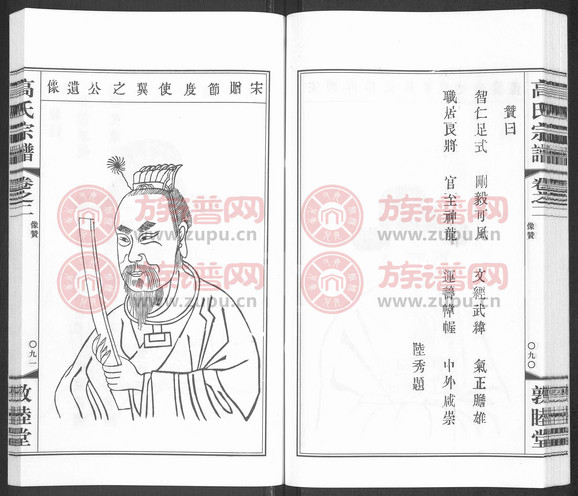 贊曰
智仁足式　剛毅可風　文經武緯　氣正膽雄
職居良將　官至神龍　運籌幃幄　中外咸崇
陸秀題
高氏宗譜
卷之一
像贊
〇九〇
敦睦堂
宋贈節度使巽之公遺像
高氏宗譜
卷之一
像贊
〇九一
敦睦堂
族谱网
www.zupu.cn
族谱网
www.zupu.cn
族谱网
www.zupu.cn
族谱网
www.zupu.cn